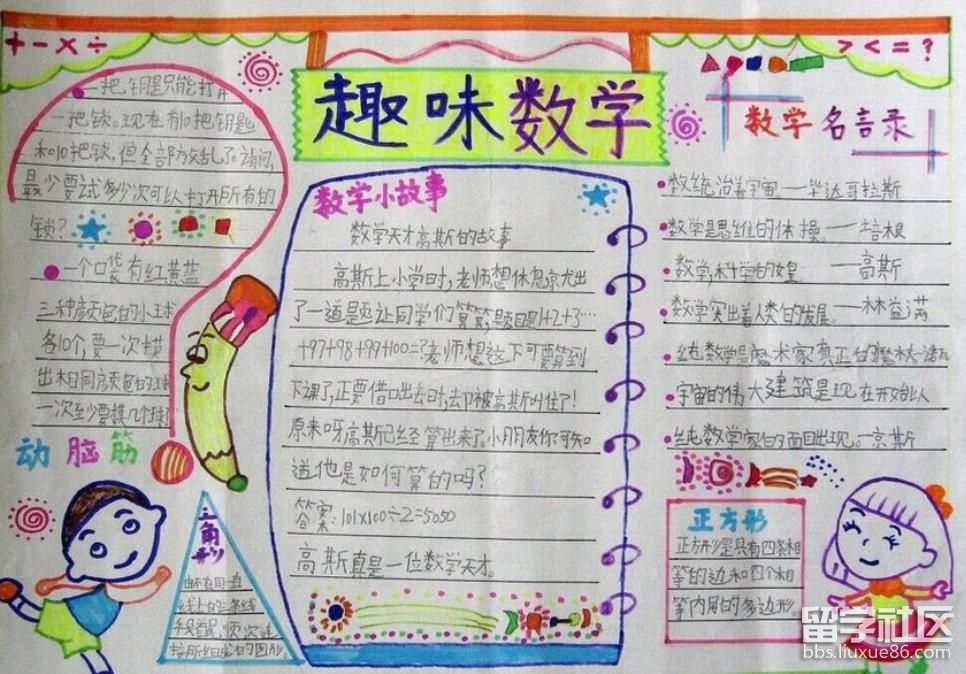 + - × ÷
> < = ?
趣味数学
一把钥匙只能打开
一把锁。现在有10把钥匙
和10把锁,但全部放乱了。请问,
最少要试多少次可以打开所有的
锁?
一个口袋有红黄蓝
三种颜色的小球
各10个,要一次摸
出相同颜色的球
一次至少要摸几个球?
动脑筋
三角形
由不在同一直
线上的三条线
段首尾顺次连
接所组成的图形。
数学小故事
数学天才高斯的故事
高斯上小学时,老师想休息就出
了一道题让同学们算算,题目是1+2+3…
+97+98+99+100=?老师想这下可要算到
下课了,正要借口出去时,却被高斯叫住了!
原来呀,高斯已经算出来了。小朋友你可知
道他是如何算的吗?
答案:101×100÷2=5050
高斯真是一位数学天才。
数学名言录
数统治着宇宙。——毕达哥拉斯
数学是思维的体操。——培根
数学,科学的女皇。——高斯
数学突出着人类的发展。
纯数学是魔术家真正的魔杖
宇宙的伟大建筑是现在开始以
纯数学家的面目出现。——京斯
正方形
正方形是具有四条相
等的边和四个相
等内角的多边形
留学社区
bbs.liuxue86.com